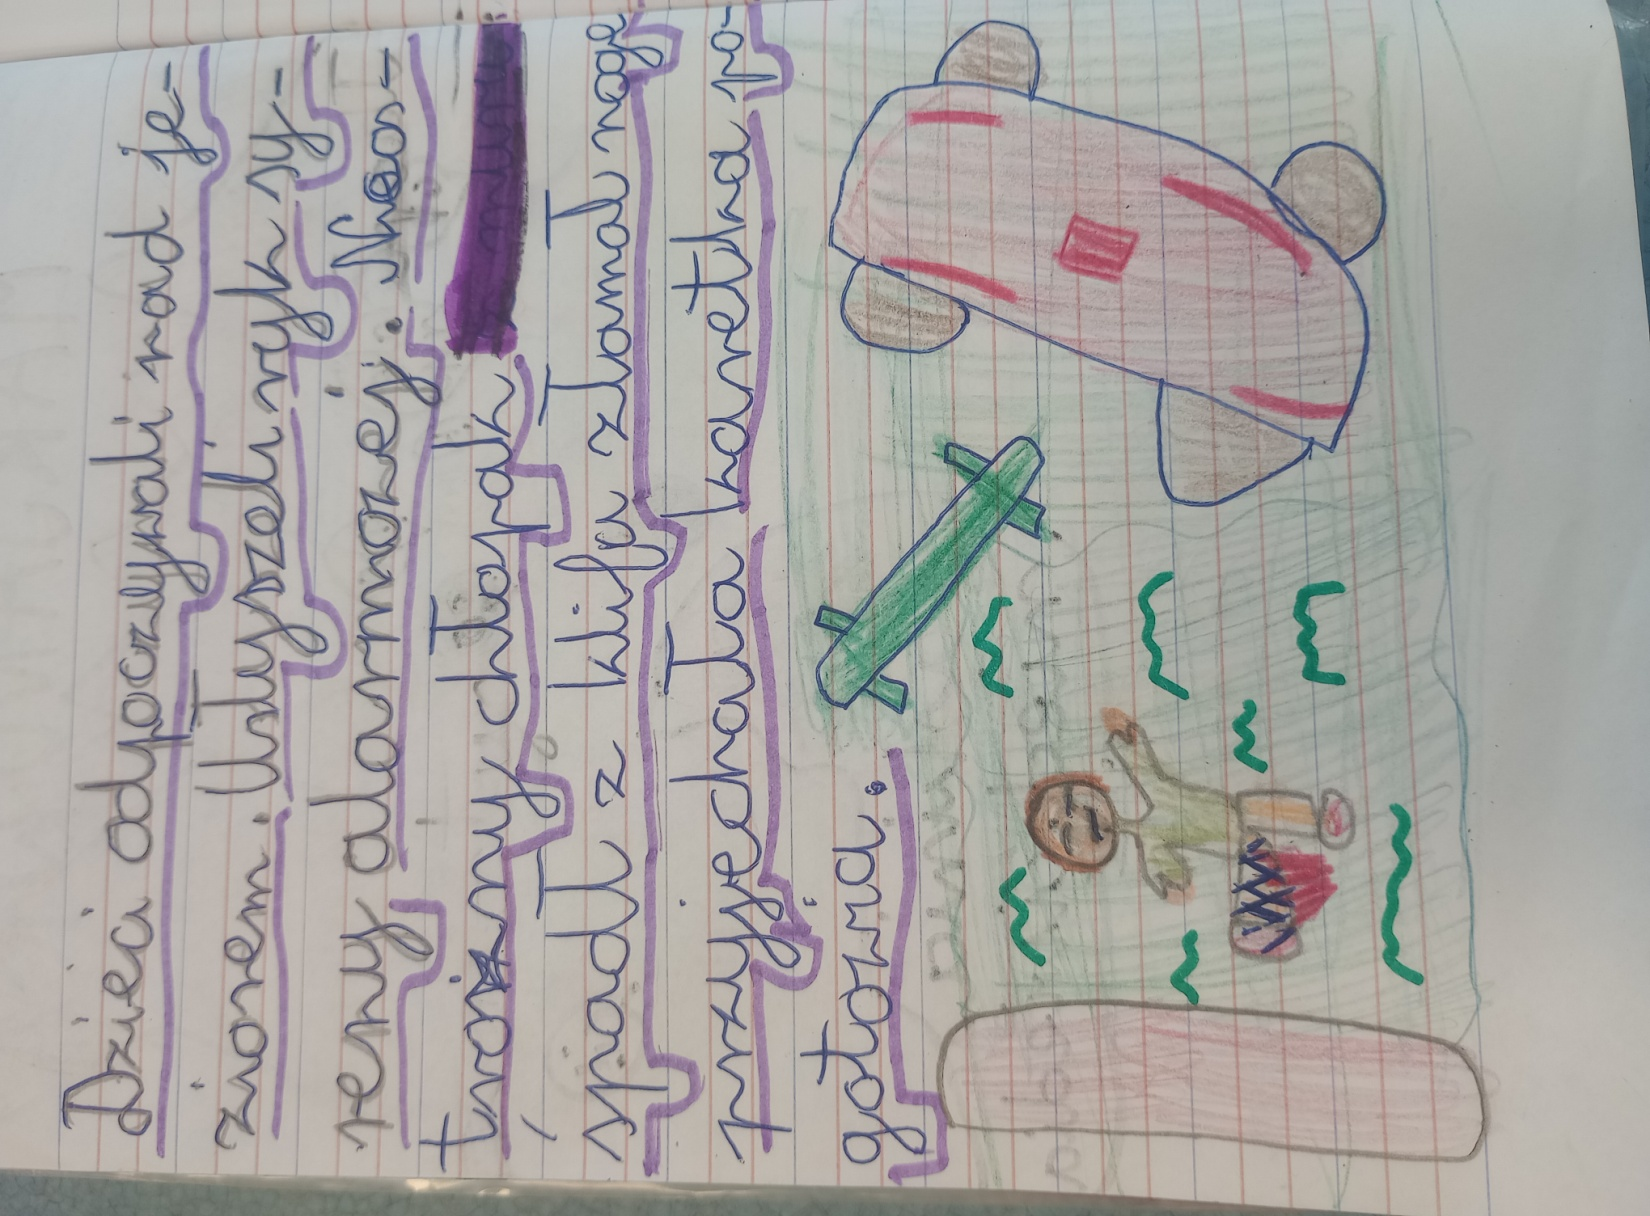 Dzieci odpoczywali nad je-
ziorem. Usłyszeli ryk sy-
reny alarmowej. Nieos-
trożny chłopak
spadł z klifu złamał nogę
przyjechała karetka po-
gotowia.